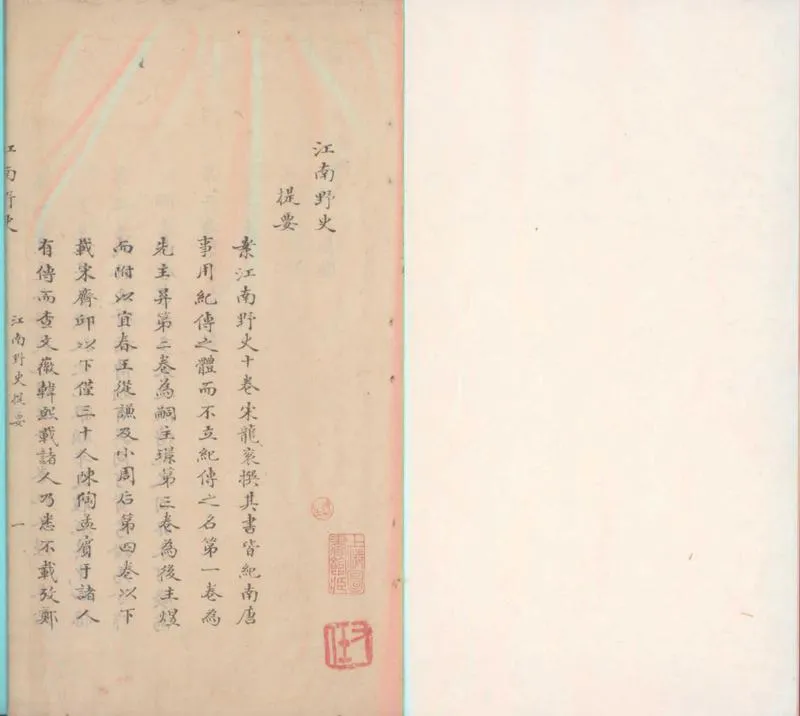 江南野史
提要
案江南野史十卷宋龍袞撰其書皆紀南唐
事用紀傳之體而不立紀傳之名第一卷為
先主昇第二卷為嗣主璟第三卷為後主煜
而附以宜春王從謙及小周后第四卷以下
載宋齊邱以下僅三十人陳陶孟賓于諸人
有傳而查文徽韓熙載諸人乃悉不載攷鄭
江南野史提要
一
江南野史